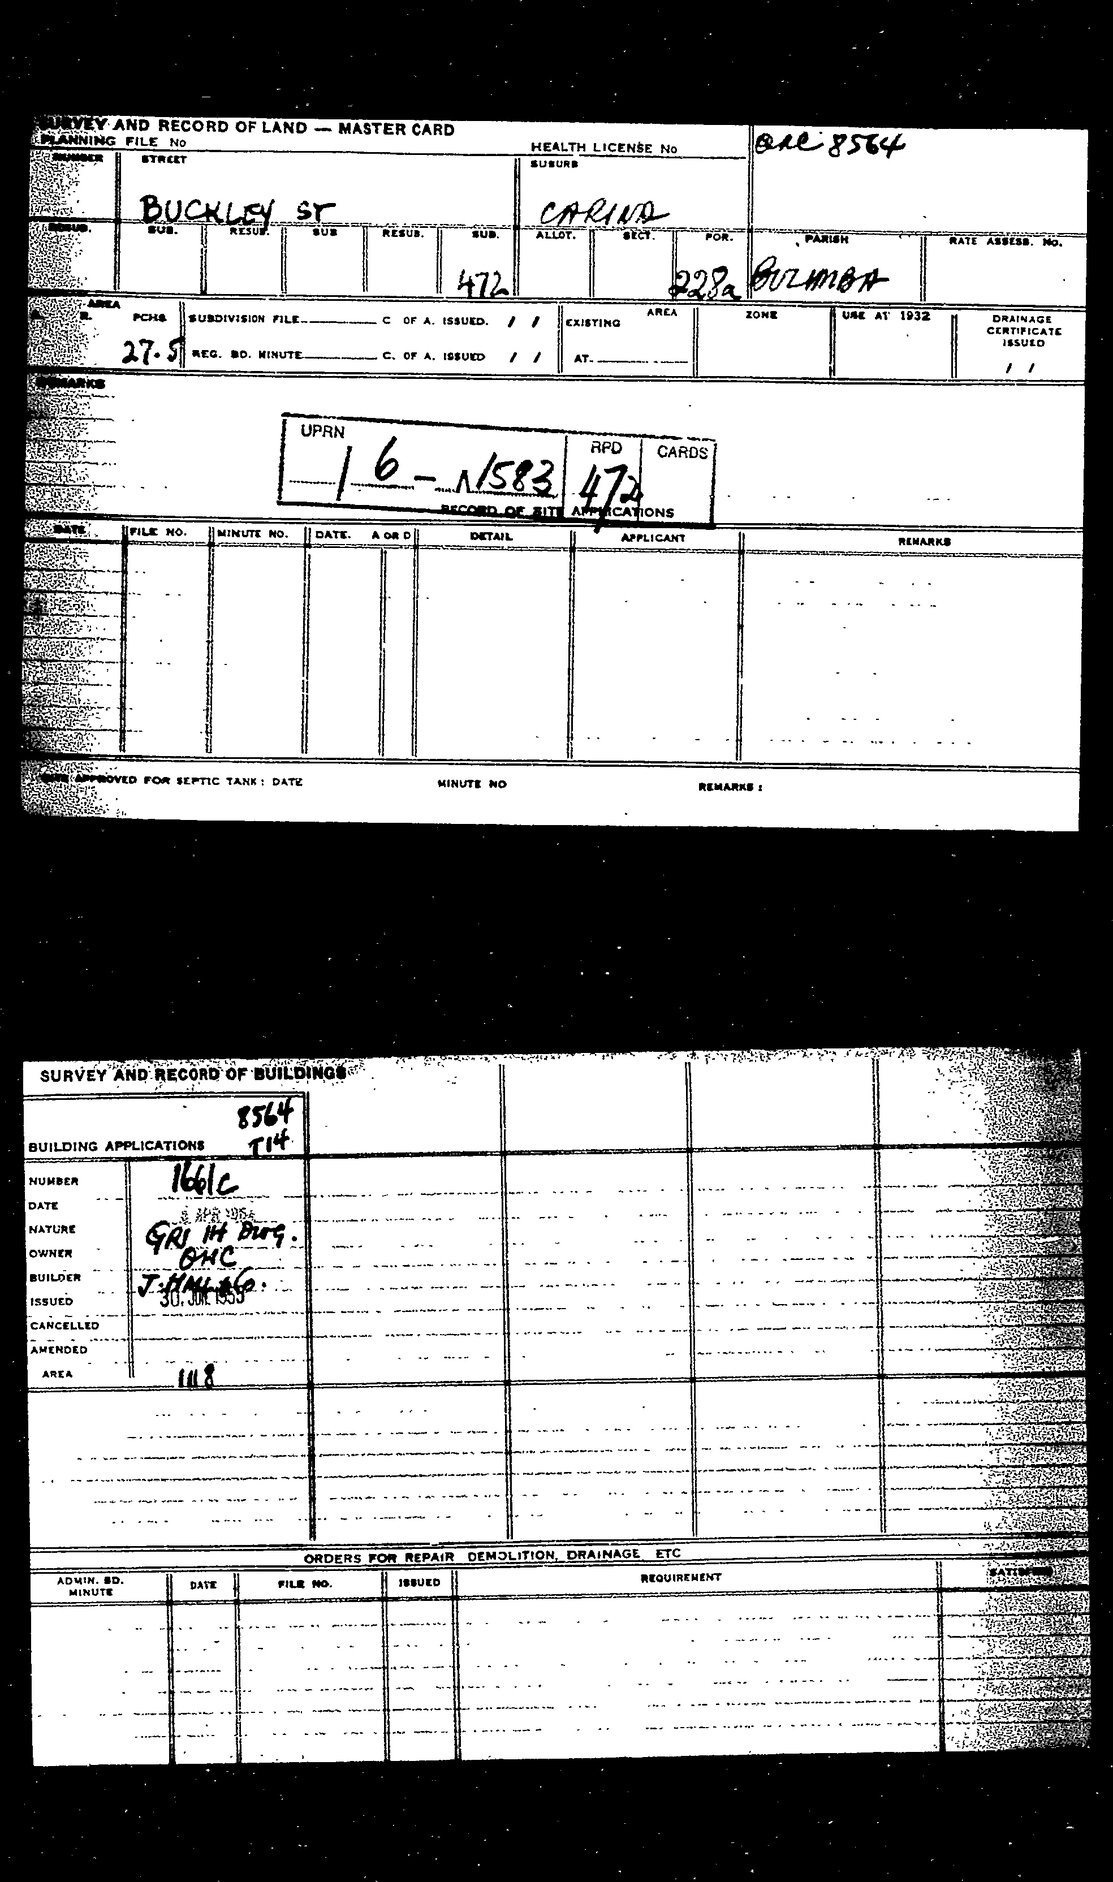 SURVEY AND RECORD OF LAND — MASTER CARD
PLANNING FILE No
HEALTH LICENSE No
QHC 8564
NUMBER STREET SUBURB
BUCKLEY ST CARINA
RESUB. SUB. RESUB. SUB RESUB. SUB. ALLOT. SECT. POR. PARISH RATE ASSESS. No.
472 228a BULIMBA
AREA
A. R. PCHS
27.5
SUBDIVISION FILE C OF A. ISSUED. / /
REG. BD. MINUTE C. OF A. ISSUED / /
EXISTING AREA
AT.
ZONE
USE AT 1932
DRAINAGE
CERTIFICATE
ISSUED
/ /
REMARKS
UPRN RPD CARDS
/ 6 — 1583 472
RECORD OF SITE APPLICATIONS
DATE FILE NO. MINUTE NO. DATE. A OR D DETAIL APPLICANT REMARKS
SITE APPROVED FOR SEPTIC TANK: DATE MINUTE NO REMARKS:
SURVEY AND RECORD OF BUILDINGS
8564
BUILDING APPLICATIONS T14
NUMBER 1661C
DATE APR 1954
NATURE GRI 1H Dwg.
OWNER QHC
BUILDER J. HALL & Co.
ISSUED 30. JUN. 1955
CANCELLED
AMENDED
AREA 1118
ORDERS FOR REPAIR DEMOLITION, DRAINAGE ETC
ADMIN. BD.
MINUTE
DATE FILE NO. ISSUED REQUIREMENT SATISFIED